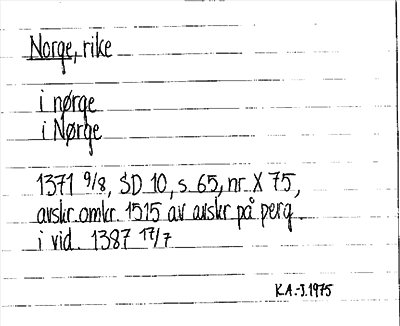 Norge, rike
i nørge
i Nørge
1371 9/8, SD 10, s. 65, nr X 75,
avskr. omkr. 1515 av avskr på perg.
i vid. 1387 17/7
K.A.-J. 1975